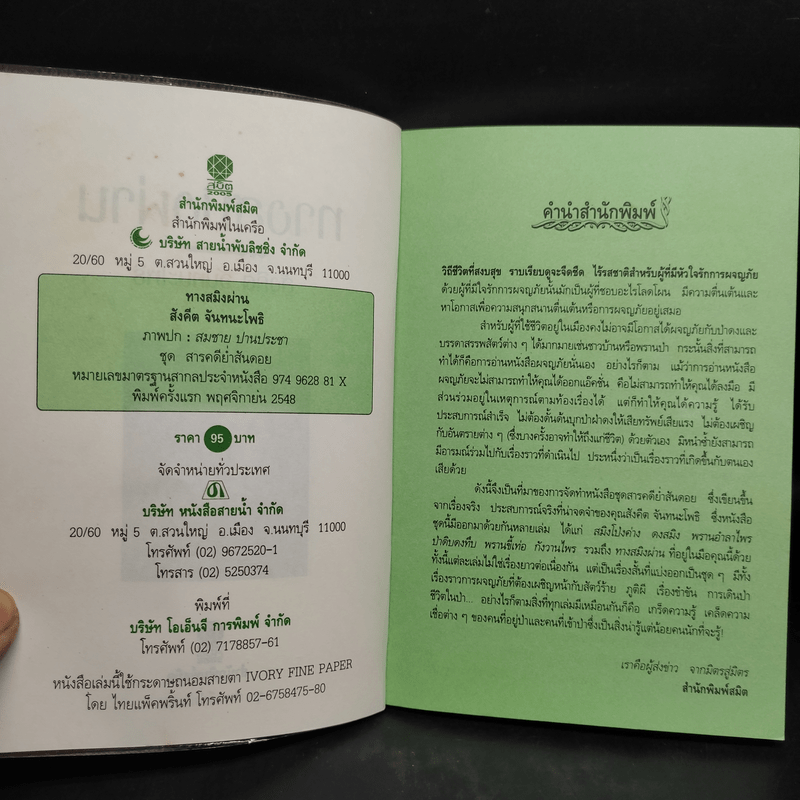 สมิต
2005
สำนักพิมพ์สมิต
สำนักพิมพ์ในเครือ
บริษัท สายน้ำพับลิชชิ่ง จำกัด
20/60 หมู่ 5 ต.สวนใหญ่ อ.เมือง จ.นนทบุรี 11000
ทางสมิงผ่าน
สังคีต จันทนะโพธิ
ภาพปก : สมชาย ปานประชา
ชุด สารคดีย่ำสันดอย
หมายเลขมาตรฐานสากลประจำหนังสือ 974 9628 81 X
พิมพ์ครั้งแรก พฤศจิกายน 2548
ราคา 95 บาท
จัดจำหน่ายทั่วประเทศ
บริษัท หนังสือสายน้ำ จำกัด
20/60 หมู่ 5 ต.สวนใหญ่ อ.เมือง จ.นนทบุรี 11000
โทรศัพท์ (02) 9672520-1
โทรสาร (02) 5250374
พิมพ์ที่
บริษัท โอเอ็นจี การพิมพ์ จำกัด
โทรศัพท์ (02) 7178857-61
หนังสือเล่มนี้ใช้กระดาษถนอมสายตา IVORY FINE PAPER
โดย ไทยแพ็คพริ้นท์ โทรศัพท์ 02-6758475-80
คำนำสำนักพิมพ์
วิถีชีวิตที่สงบสุข ราบเรียบดูจะจืดชืด ไร้รสชาติสำหรับผู้ที่มีหัวใจรักการผจญภัย
ด้วยผู้ที่มีใจรักการผจญภัยนั้นมักเป็นผู้ที่ชอบอะไรโลดโผน มีความตื่นเต้นและ
หาโอกาสเพื่อความสนุกสนานตื่นเต้นหรือการผจญภัยอยู่เสมอ
สำหรับผู้ที่ใช้ชีวิตอยู่ในเมืองคงไม่อาจมีโอกาสได้ผจญภัยกับป่าดงและ
บรรดาสรรพสัตว์ต่าง ๆ ได้มากมายเช่นชาวบ้านหรือพรานป่า กระนั้นสิ่งที่สามารถ
ทำได้ก็คือการอ่านหนังสือผจญภัยนั่นเอง อย่างไรก็ตาม แม้ว่าการอ่านหนังสือ
ผจญภัยจะไม่สามารถทำให้คุณได้ออกแอ็คชั่น คือไม่สามารถทำให้คุณได้ลงมือ มี
ส่วนร่วมอยู่ในเหตุการณ์ตามท้องเรื่องได้ แต่ก็ทำให้คุณได้ความรู้ ได้รับ
ประสบการณ์สำเร็จ ไม่ต้องดั้นด้นบุกป่าฝ่าดงให้เสียทรัพย์เสียแรง ไม่ต้องเผชิญ
กับอันตรายต่าง ๆ (ซึ่งบางครั้งอาจทำให้ถึงแก่ชีวิต) ด้วยตัวเอง มิหนำซ้ำยังสามารถ
มีอารมณ์ร่วมไปกับเรื่องราวที่ดำเนินไป ประหนึ่งว่าเป็นเรื่องราวที่เกิดขึ้นกับตนเอง
เสียด้วย
ดังนี้จึงเป็นที่มาของการจัดทำหนังสือชุดสารคดีย่ำสันดอย ซึ่งเขียนขึ้น
จากเรื่องจริง ประสบการณ์จริงที่น่าจดจำของคุณสังคีต จันทนะโพธิ ซึ่งหนังสือ
ชุดนี้มีออกมาด้วยกันหลายเล่ม ได้แก่ สมิงโป่งค่าง ดงสมิง พรานอำลาไพร
ป่าดิบดงทึบ พรานขี้เท่อ กังวานไพร รวมถึง ทางสมิงผ่าน ที่อยู่ในมือคุณนี้ด้วย
ทั้งนี้แต่ละเล่มไม่ใช่เรื่องยาวต่อเนื่องกัน แต่เป็นเรื่องสั้นที่แบ่งออกเป็นชุด ๆ มีทั้ง
เรื่องราวการผจญภัยที่ต้องเผชิญหน้ากับสัตว์ร้าย ภูติผี เรื่องขำขัน การเดินป่า
ชีวิตในป่า... อย่างไรก็ตามสิ่งที่ทุกเล่มมีเหมือนกันก็คือ เกร็ดความรู้ เคล็ดความ
เชื่อต่าง ๆ ของคนที่อยู่ป่าและคนที่เข้าป่าซึ่งเป็นสิ่งน่ารู้แต่น้อยคนนักที่จะรู้!
เราคือผู้ส่งข่าว จากมิตรสู่มิตร
สำนักพิมพ์สมิต